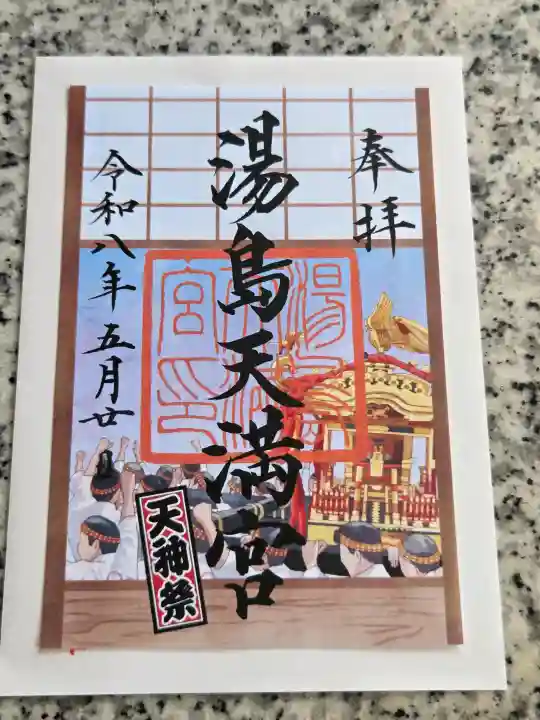 奉拝
湯島天満宮
令和八年五月廿日
天神祭